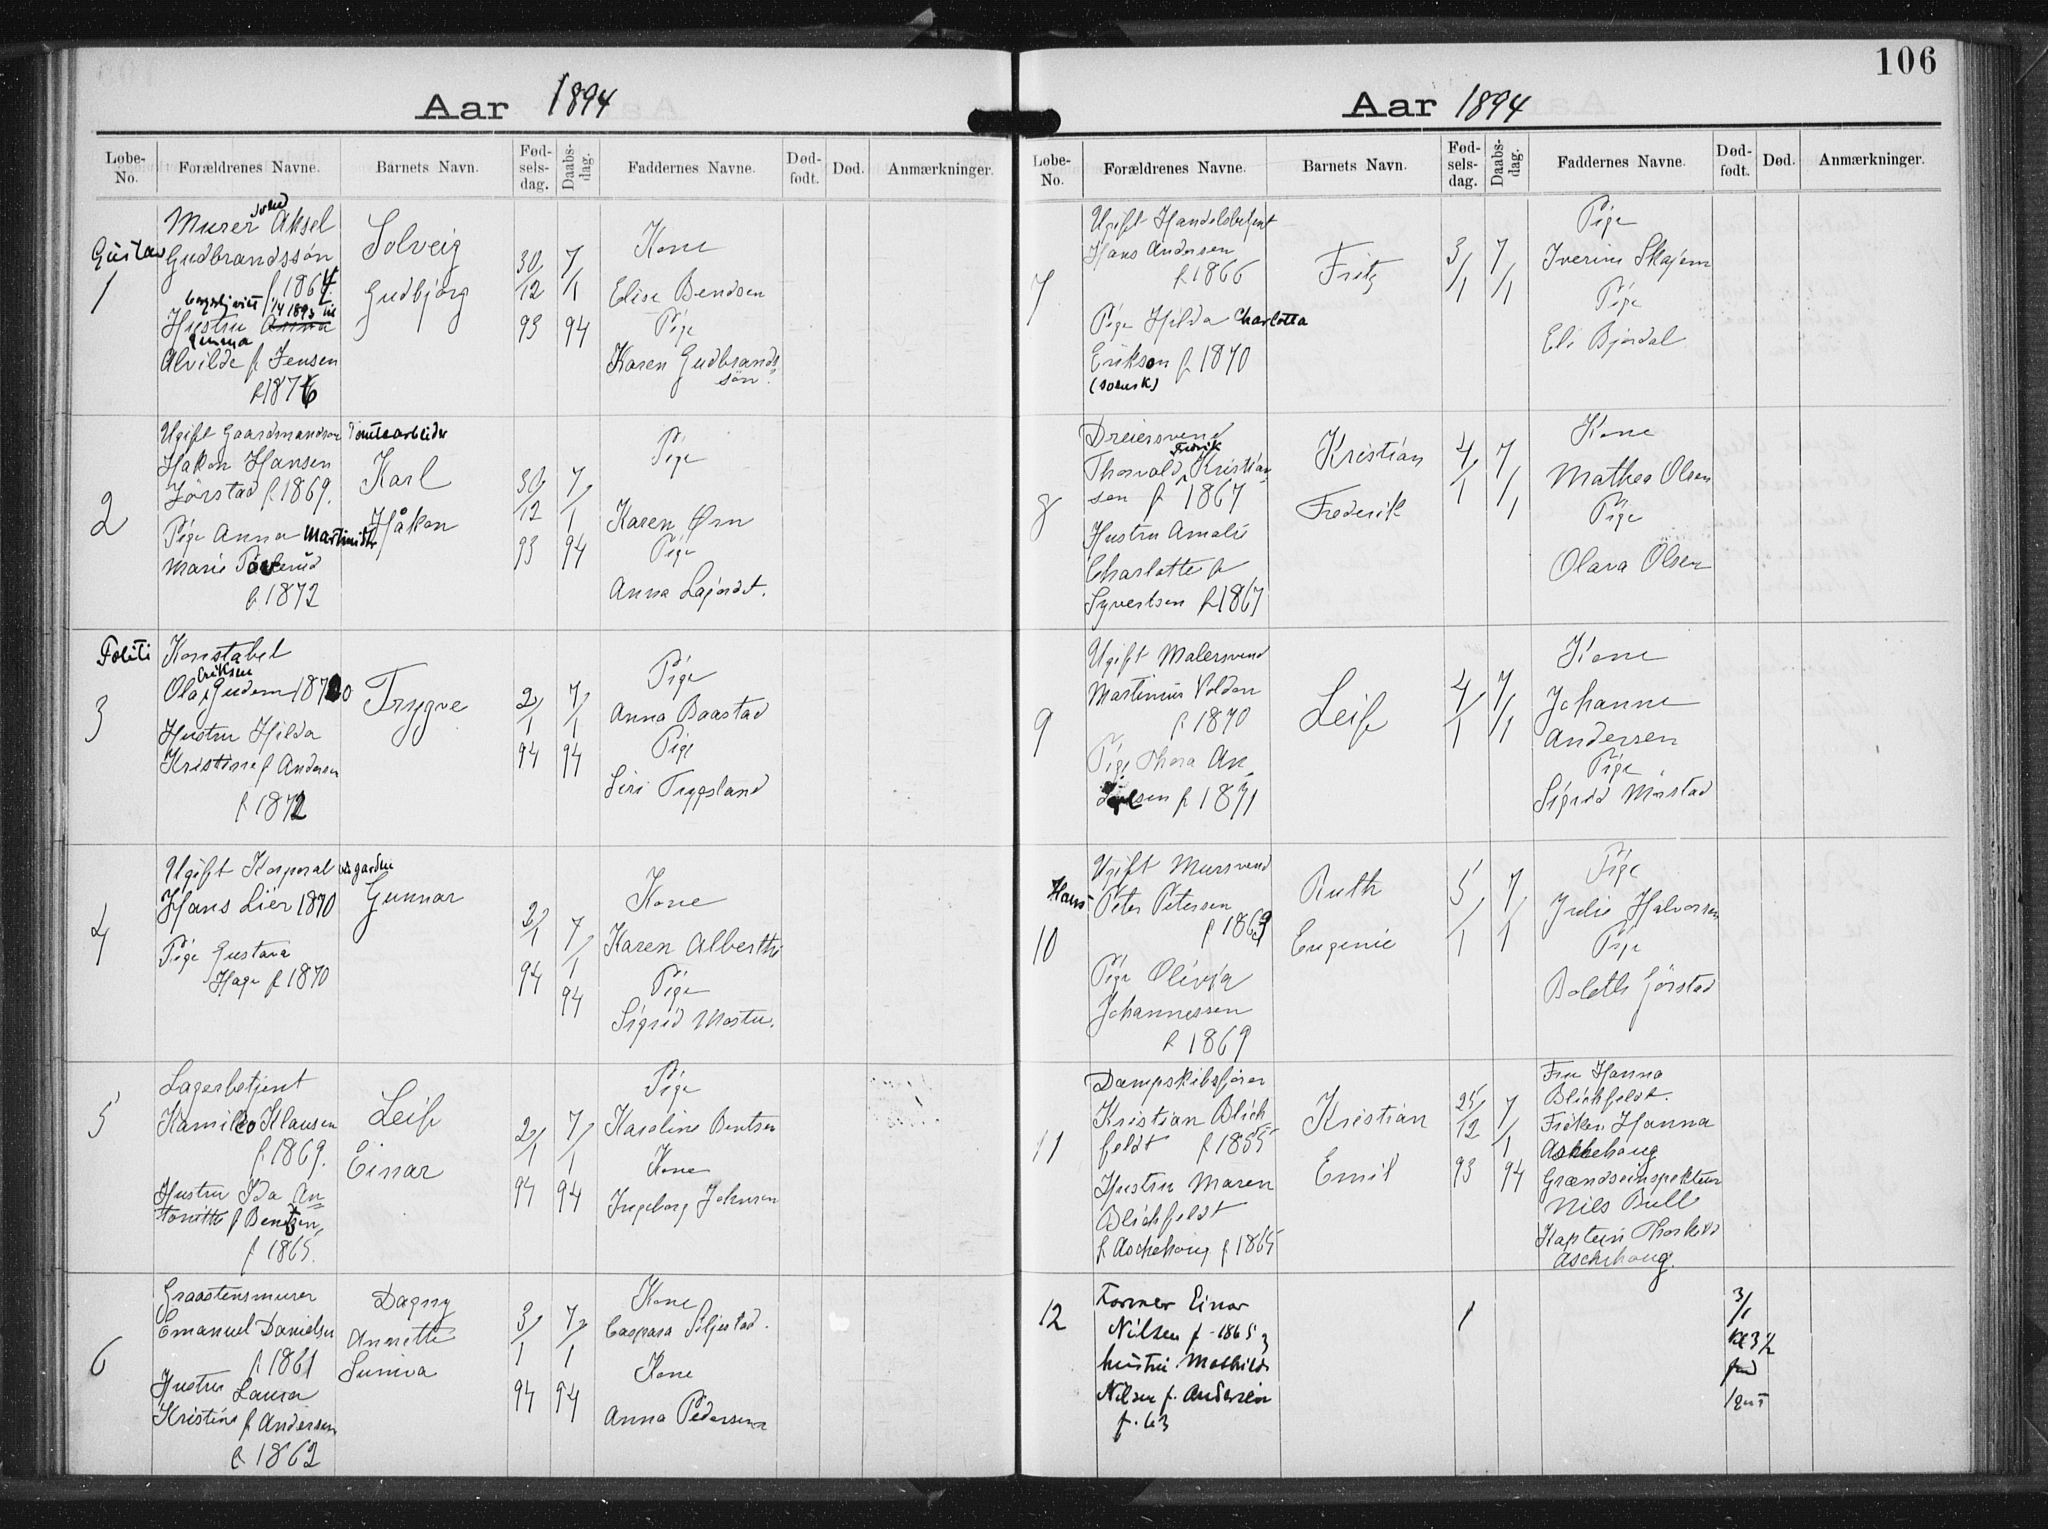 Aar 1894
Løbe-No.
Forældrenes Navne.
Barnets Navn.
Fødselsdag.
Daabsdag.
Faddernes Navne.
Dødfødt.
Død.
Anmærkninger.
Gustav
1
Murer Aksel
Gudbrandssøn
f 1864
Hustru
Alvilde f Jensen
f 1876
Solveig
Gudbjørg
30/12 93
7/1 94
Kone
Elise Bendsen
Pige
Karen Gudbrands
søn
2
Ugift Gaardmandssøn
Hakon Hansen
Jørstad f 1869.
Pige Anna
Marie
f 1872
Karl
Håkon
30/12 93
7/1 94
Pige
Karen Ørn
Pige
Anna Lajordet.
Politi
3
Konstabel
Eriksen
Ola Gudem 1870
Hustru Hilda
Kristine f Andersen
f 1872
Trygve
2/1 94
7/1 94
Pige
Anna Baastad
Pige
Siri Tryggsland
4
Ugift Korporal v garden
Hans Lier 1870
Pige Gustava
Hage f 1870
Gunnar
2/1 94
7/1 94
Kone
Karen Alberthe
Pige
Sigrid
5
Lagerbetjent
Kamillo Klausen
f 1869.
Hustru Ida An
tonette f Bentsen,
f 1865.
Leif
Einar
2/1 94
7/1 94
Pige
Karoline Bentsen
Kone
Ingeborg Johnsen
6
Graastensmurer
Emanuel Danielsen
f 1861
Hustru Laura
Kristine f Andersen
f 1862
Dagny
Annette
Suniva
3/1 94
7/1 94
Kone
Caspara Siljestad.
Kone
Anna Pedersen
106
Aar 1894
Løbe-No.
Forældrenes Navne.
Barnets Navn.
Fødselsdag.
Daabsdag.
Faddernes Navne.
Dødfødt.
Død.
Anmærkninger.
7
Ugift Handelsbetjent
Hans Andersen
f 1866
Pige Hilda Charlotta
Erikson f 1870
(svensk)
Fritz
3/1
7/1
Pige
Iverine Skajem
Pige
Eli Bjørdal
8
Dreiersvend
Fredrik
Thorvald Kristian
sen f 1867
Hustru Amalie
Charlotte f
Syvertsen f 1867
Kristian
Frederik
4/1
7/1
Kone
Mathea Olsen
Pige
Olava Olsen
9
Ugift Malersvend
Martinius Volden
f 1870
Pige Thora An
f 1871
Leif
4/1
7/1
Kone
Johanne
Andersen
Pige
Sigrid Mørstad
Hans
10
Ugift Mursvend
Peter Petersen
f 1869
Pige Olivia
Johannessen
f 1869
Ruth
Eugenie
5/1
7/1
Pige
Julie Halvorsen
Pige
Boleth Jørstad
11
Dampskibsfører
Kristian Blich
feldt f 1855
Hustru Maren
Blichfeldt
f Aschehoug f 1865
Kristian
Emil
25/12 93
7/1 94
Fru Hanna
Blichfeldt.
Frøken Hanna
Aschehoug
Grændseinspektør
Nils Bull
Kaptein Thorkild
Aschehoug.
12
Former Einar
Nilsen f. 1865
hustru Mathilde
Nilsen f. Andersen
f. 63
1
3/1
kl 3 1/2